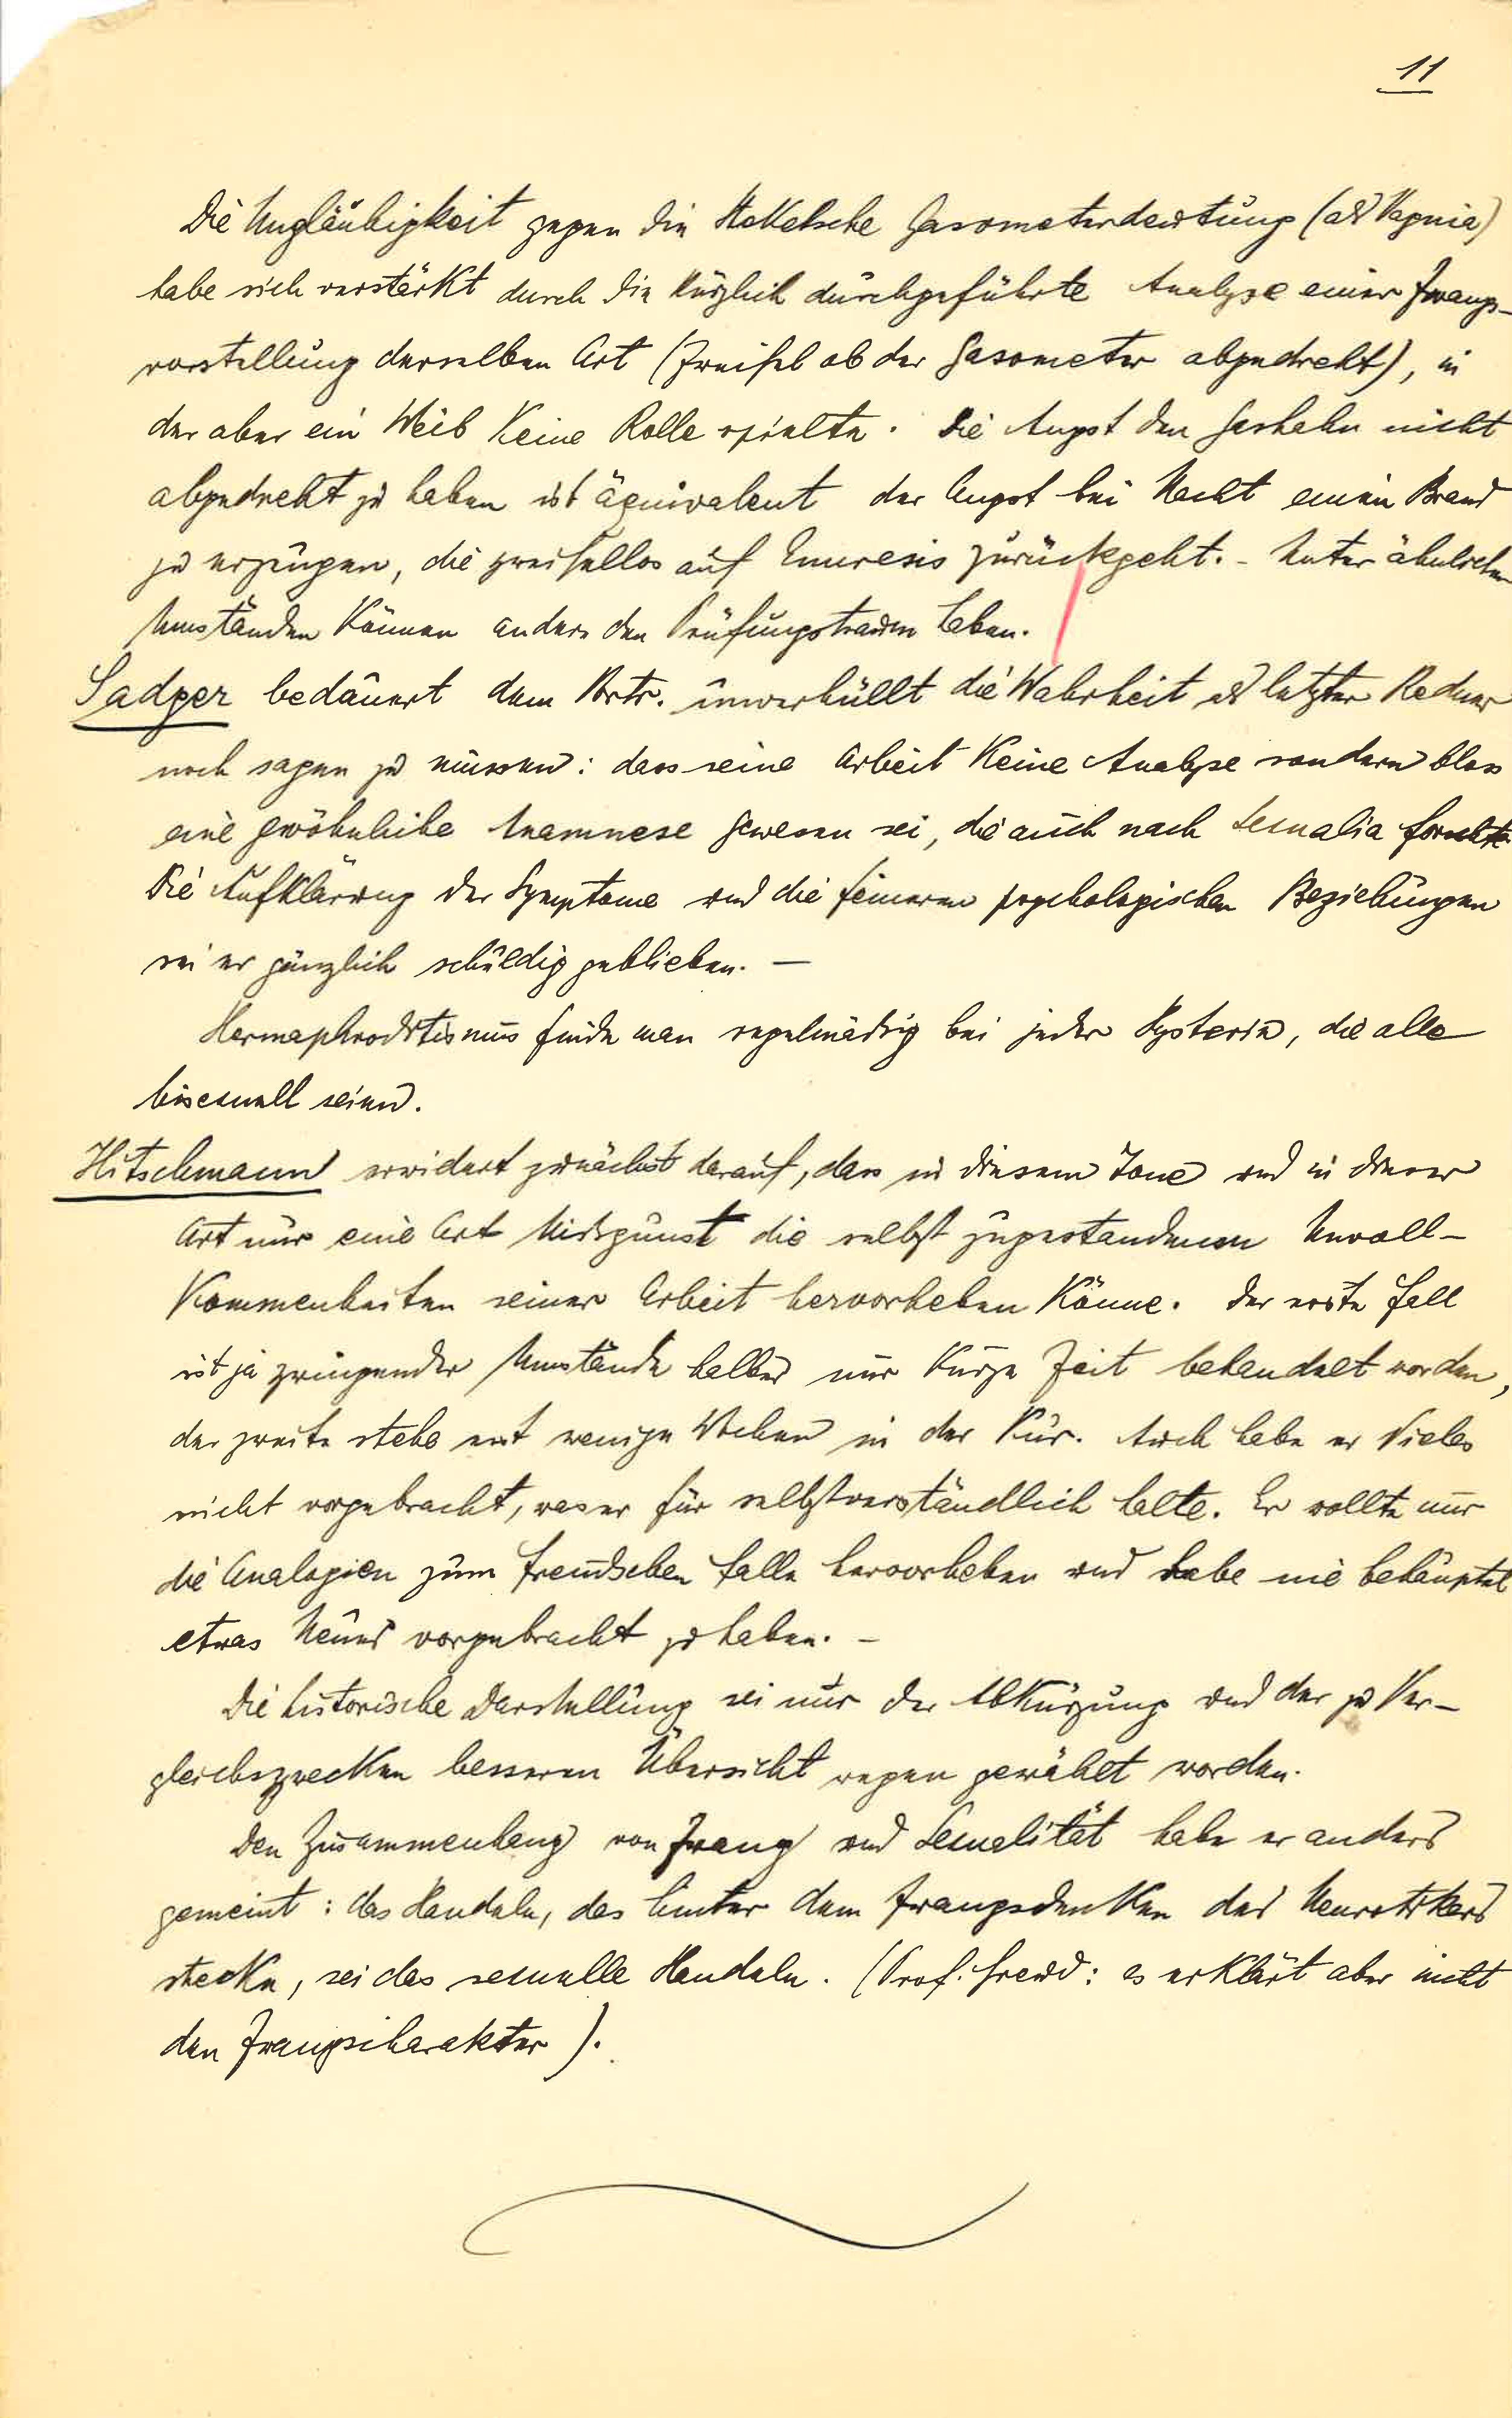 11
Die Ungläubigkeit gegen die Stekelsche Gasometerdeutung (als Vagina)
habe sich verstärkt durch die kürzlich durchgeführte Analyse einer Zwangs-
vorstellung derselben Art (Zweifel ob der Gasometer abgedreht), in
der aber ein Weib keine Rolle spielte. Die Angst den Gashahn nicht
abgedreht zu haben ist äquivalent der Angst bei Nacht einen Brand
zu erzeugen, die zweifellos auf Enuresis zurückgeht. - Unter ähnlichen
Umständen können andere den Prüfungstraum haben.
Sadger bedauert dem Vortr. unverhüllt die Wahrheit als letzter Redner
noch sagen zu müssen: dass seine Arbeit keine Analyse sondern blos
eine gewöhnliche Anamnese gewesen sei, die auch nach Sexualia forscht.
Die Aufklärung der Symptome und die feineren psychologischen Beziehungen
sei er gänzlich schuldig geblieben. —
Hermaphroditismus finde man regelmäßig bei jeder Hysterie, die alle
bisexuell seien.
Hitschmann erwidert zunächst darauf, dass in diesem Tone und in dieser
Art nur eine Art Missgunst die selbst zugestandenen Unvoll-
kommenheiten seiner Arbeit hervorheben könne. Der erste Fall
ist ja zwingender Umstände halber nur kurze Zeit behandelt worden,
der zweite stehe erst wenige Wochen in der Kur. Auch habe er Vieles
nicht vorgebracht, was er für selbstverständlich halte. Er wollte nur
die Analogien zum Freudschen Falle hervorheben und habe nie behauptet
etwas Neues vorgebracht zu haben. -
Die historische Darstellung sei nur der Abkürzung und der zu Ver-
gleichszwecken besseren Übersicht wegen gewählt worden.
Den Zusammenhang von Zwang und Sexualität habe er anders
gemeint: das Handeln, das hinter dem Zwangsdenken des Neurotikers
stecke, sei das sexuelle Handeln. (Prof. Freud: es erklärt aber nicht
den Zwangscharakter).